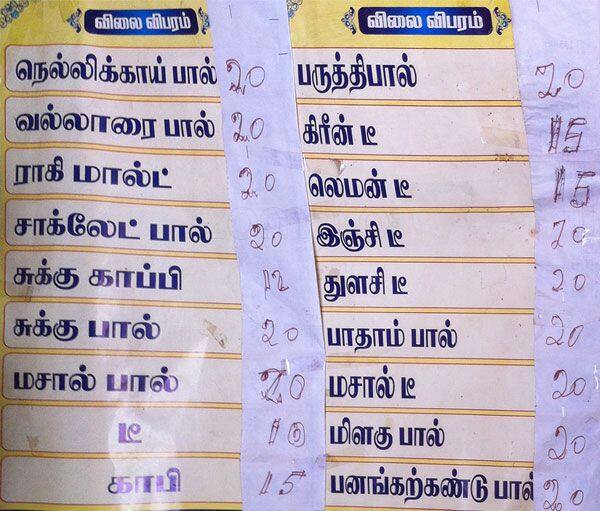 விலை விபரம்
நெல்லிக்காய் பால் 20
வல்லாரை பால் 20
ராகி மால்ட் 20
சாக்லேட் பால் 20
சுக்கு காப்பி 12
சுக்கு பால் 20
மசால் பால் 20
டீ 10
காபி 15
விலை விபரம்
பருத்திபால் 20
கிரீன் டீ 15
லெமன் டீ 15
இஞ்சி டீ 20
துளசி டீ 20
பாதாம் பால் 20
மசால் டீ 20
மிளகு பால் 20
பனங்கற்கண்டு பால் 20